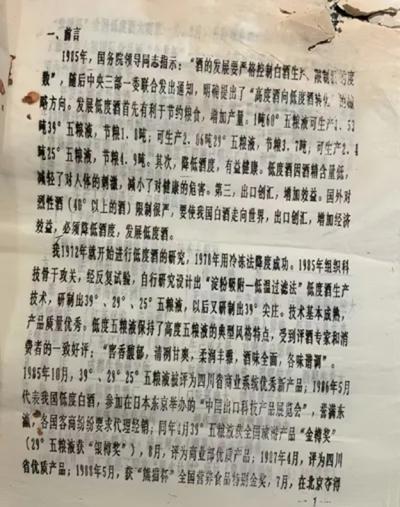 一、前言
1985年,国务院领导同志指示:“酒的发展要严格控制白酒生产、限制
数”,随后中央三部一委联合发出通知,明确提出了“高度酒向低度酒转化”的
略方向。发展低度酒首先有利于节约粮食,增加产量:1吨60°五粮液可生产1.53
吨39°五粮液,节粮1.8吨;可生产2.06吨29°五粮液,节粮3.7吨;可生产2.
吨25°五粮液,节粮4.9吨。其次,降低酒度,有益健康。低度酒因酒精含量低,
减轻了对人体的刺激,减小了对健康的危害。第三,出口创汇,增加效益。国外对
烈性酒(40°以上的酒)限制很严,要使我国白酒走向世界,出口创汇,增加经济
效益,必须降低酒度,发展低度酒。
我1972年就开始进行低度酒的研究,1978年用冷冻法降度成功。1985年组织科
技骨干攻关,经反复试验,自行研究设计出“淀粉吸附—低温过滤法”低度酒生产
技术,研制出39°、29°、25°五粮液,以后又研制出39°尖庄。技术基本成熟,
产品质量优秀。低度五粮液保持了高度五粮液的典型风格特点,受到评酒专家和消
费者的一致好评:“窖香馥郁,清冽甘爽,柔润丰雅,酒味全面,各味谐调”。
1985年10月,39°、29°25°五粮液被评为四川省商业系统优秀新产品;1986年5月
代表我国低度白酒,参加在日本东京举办的“中国出口科技产品展览会”,誉满东
瀛,各国客商纷纷要求代理经销;同年4月39°五粮液获全国旅游产品“金樽奖”
(29°五粮液获“银樽奖”),8月,评为商业部优质产品;1987年4月,评为四川
省优质产品;1988年5月,获“熊猫杯”全国营养食品特别金奖,7月,在北京夺得
1